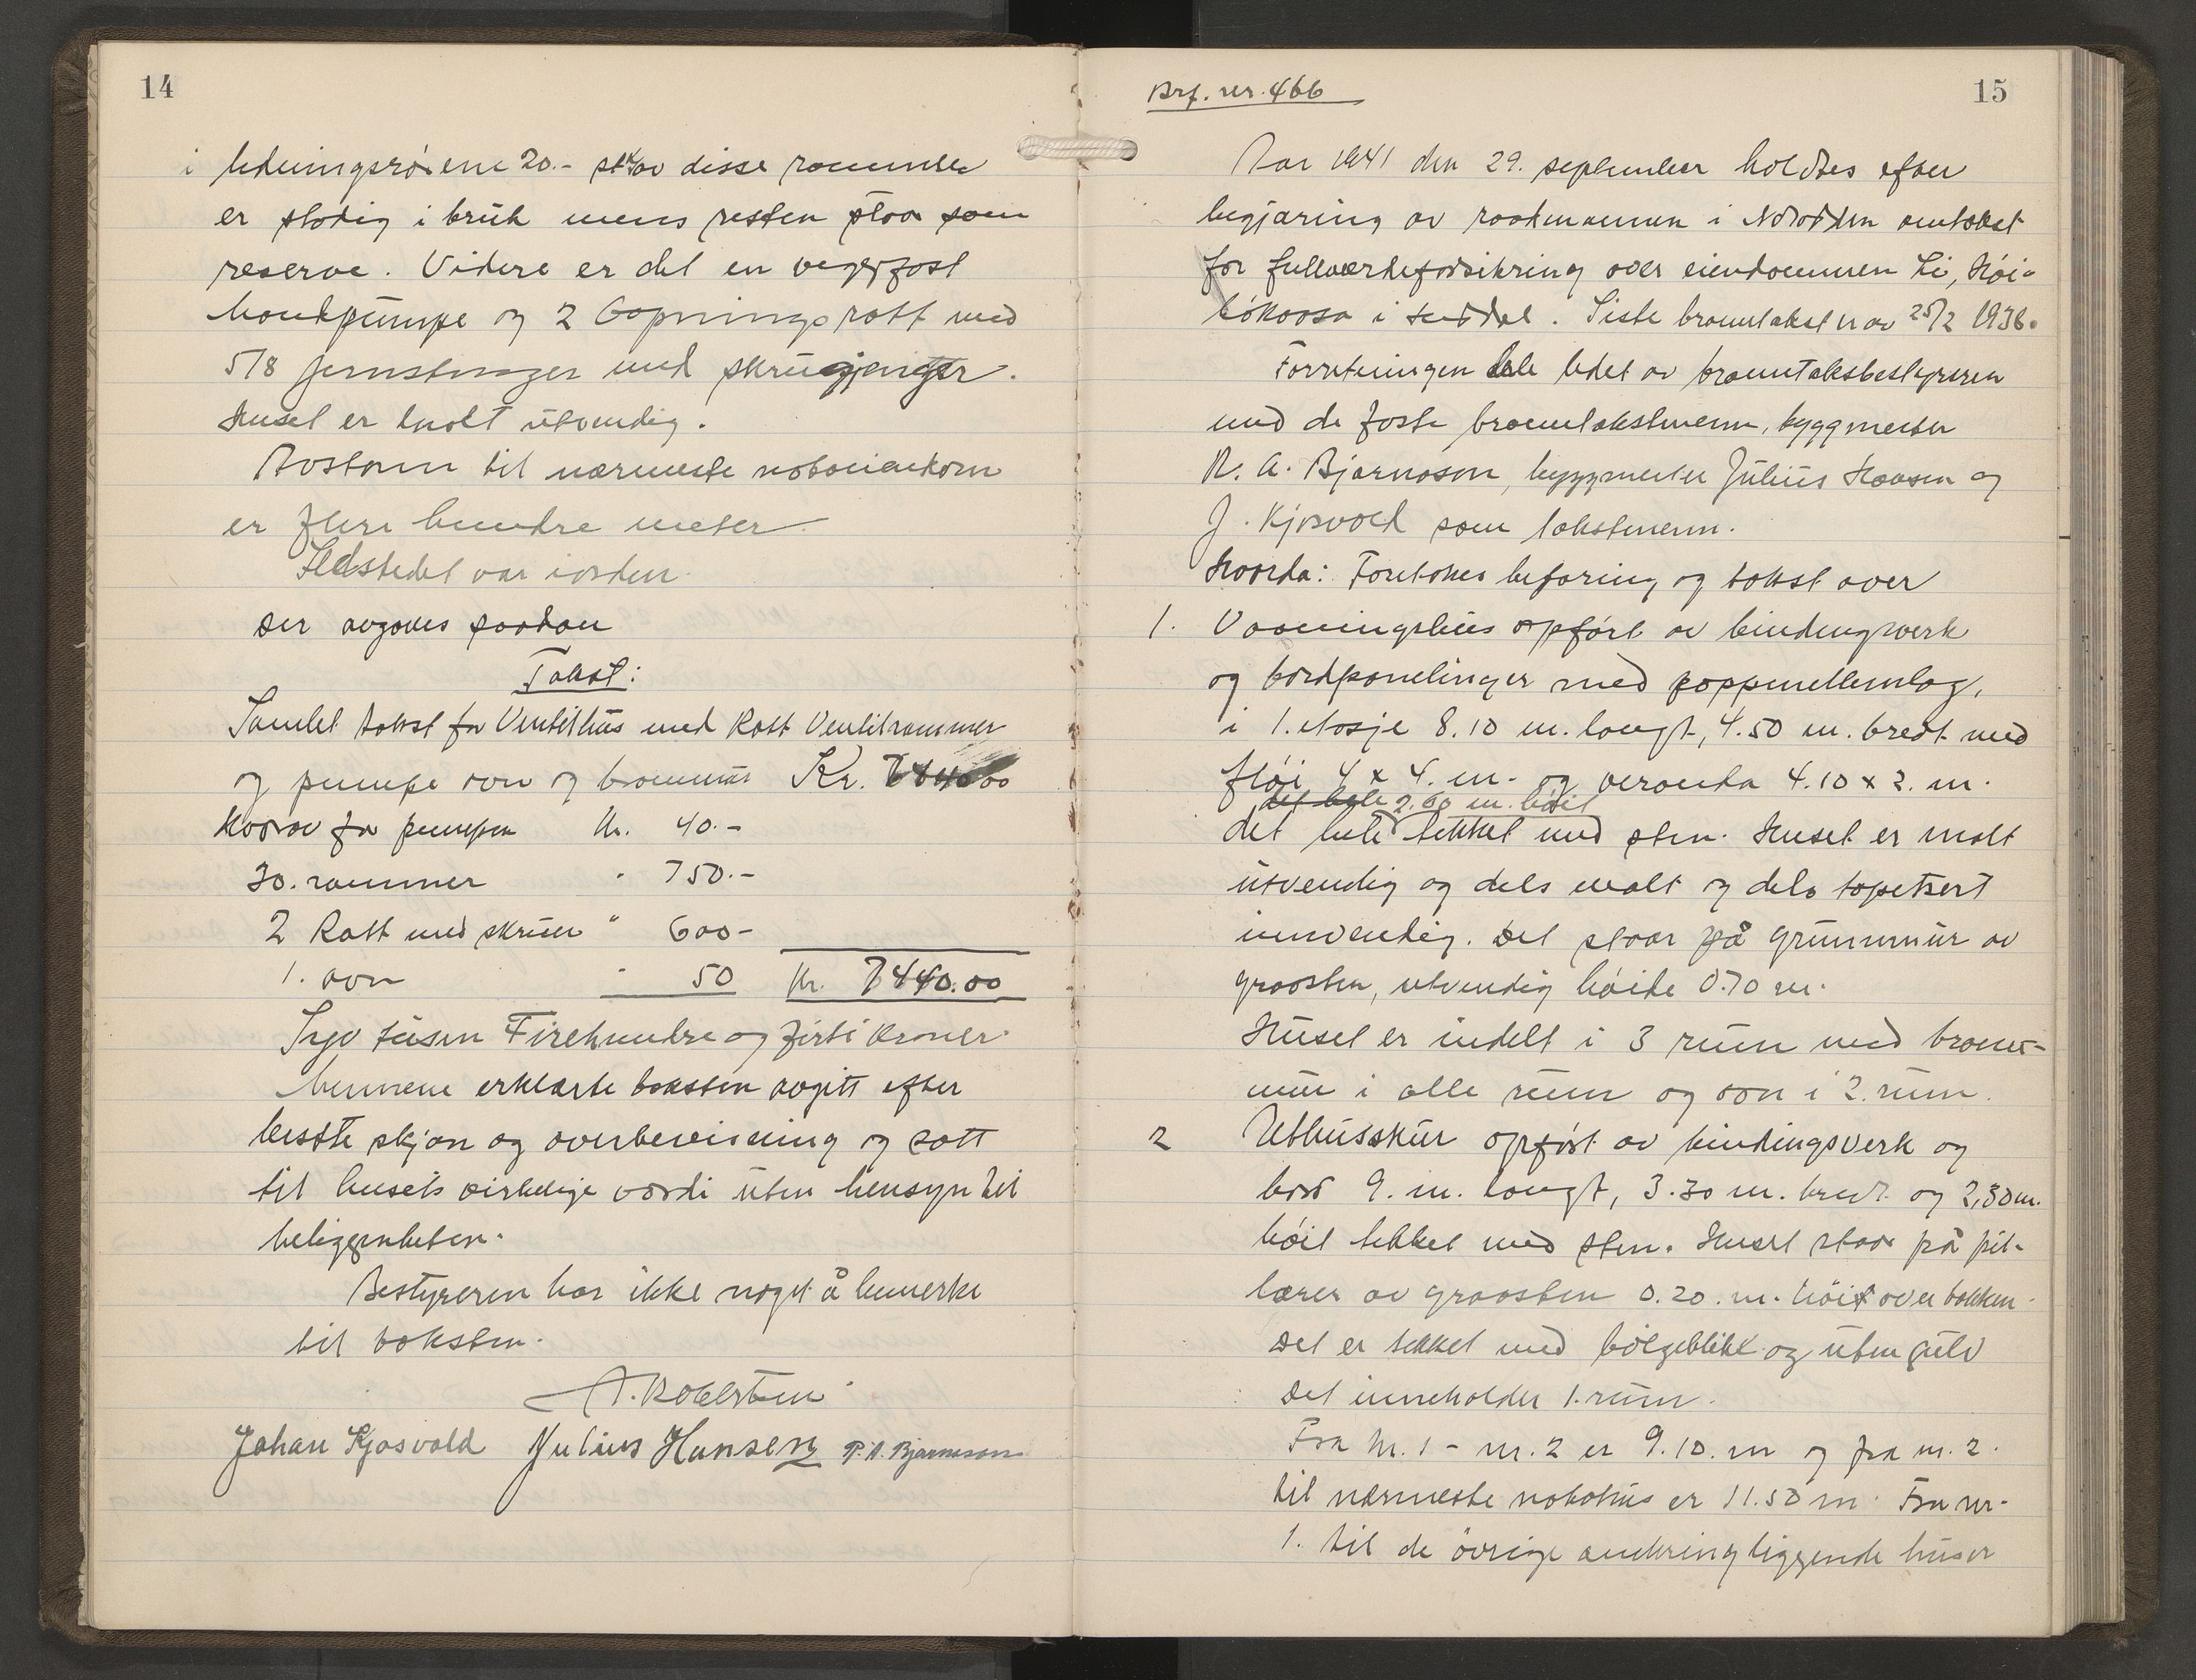 14
i ledningsrøiene 20.- stk av disse rammer
er stadig i bruk mens resten staar som
reserve. Videre er det en veggfast
handpumpe og 2 tapningsratt med
5/8 jernstenger med skrugjenger.
Huset er malt utvendig.
Avstann til nærmeste nabo
er flere hundre meter
Ildstedet var i orden.
Der avgaves saadan
Takst:
Samlet takst for Ventilhus med Ratt Ventilrammer
og pumpe ovn og brannmur Kr.
Hvorav for pumpen Kr. 40.-
30. rammer " 750.-
2 Ratt med skruer " 600-
1. ovn " 50 Kr. 7440.00
Syv tusen Firehundre og førti kroner
Mennene erklærte taksten avgitt efter
beste skjøn og overbevisning og satt
til husets virkelige verdi uten hensyn til
beliggenheten.
Bestyreren har ikke noget å bemerke
til taksten.
Johan Kjosvold Julius Hansen R. A. Bjarnason
15
Brf. nr. 466
Aar 1941 den 29. september holdtes efter
begjæring av raadmannen i Notodden omtakst
for fullverdiforsikring over eiendommen Li, Høi-
i Heddal. Siste branntakst er av 25/2 1938.
Forretningen ble ledet av branntakstbestyreren
med de faste branntakstmenn, byggmester
R. A. Bjarnason, byggmester Julius Hansen og
J. Kjosvold som takstmenn.
Hvorda: Foretokes befaring og takst over
1. Vaaningshus opført av bindingsverk
og bordpanelinger med pappmellemlag,
i 1. etasje 8.10 m. langt, 4.50 m. bredt med
fløi 4 x 4. m. og veranda 4.10 x 2. m.
det hele 2.60 m. høit
det hele tekket med sten. Huset er malt
utvendig og dels malt og dels tapetsert
innvendig. Det staar på grunnmur av
graasten, utvendig høide 0.70 m.
Huset er indelt i 3 rum med brann-
mur i alle rum og ovn i 2. rum.
2 Uthusskur opført av bindingsverk og
bord 9. m. langt, 3.30 m. bredt og 2,30 m.
høit tekket med sten. Huset staar på pil-
larer av graasten 0.20. m. høit over bakken.
Det er tekket med bølgeblikk og uten gulv
Det inneholder 1. rum.
Fra nr. 1 - nr. 2 er 9.10. m og fra nr. 2.
til nærmeste nabohus er 11.50 m. Fra nr.
1. til de øvrige omkringliggende huser